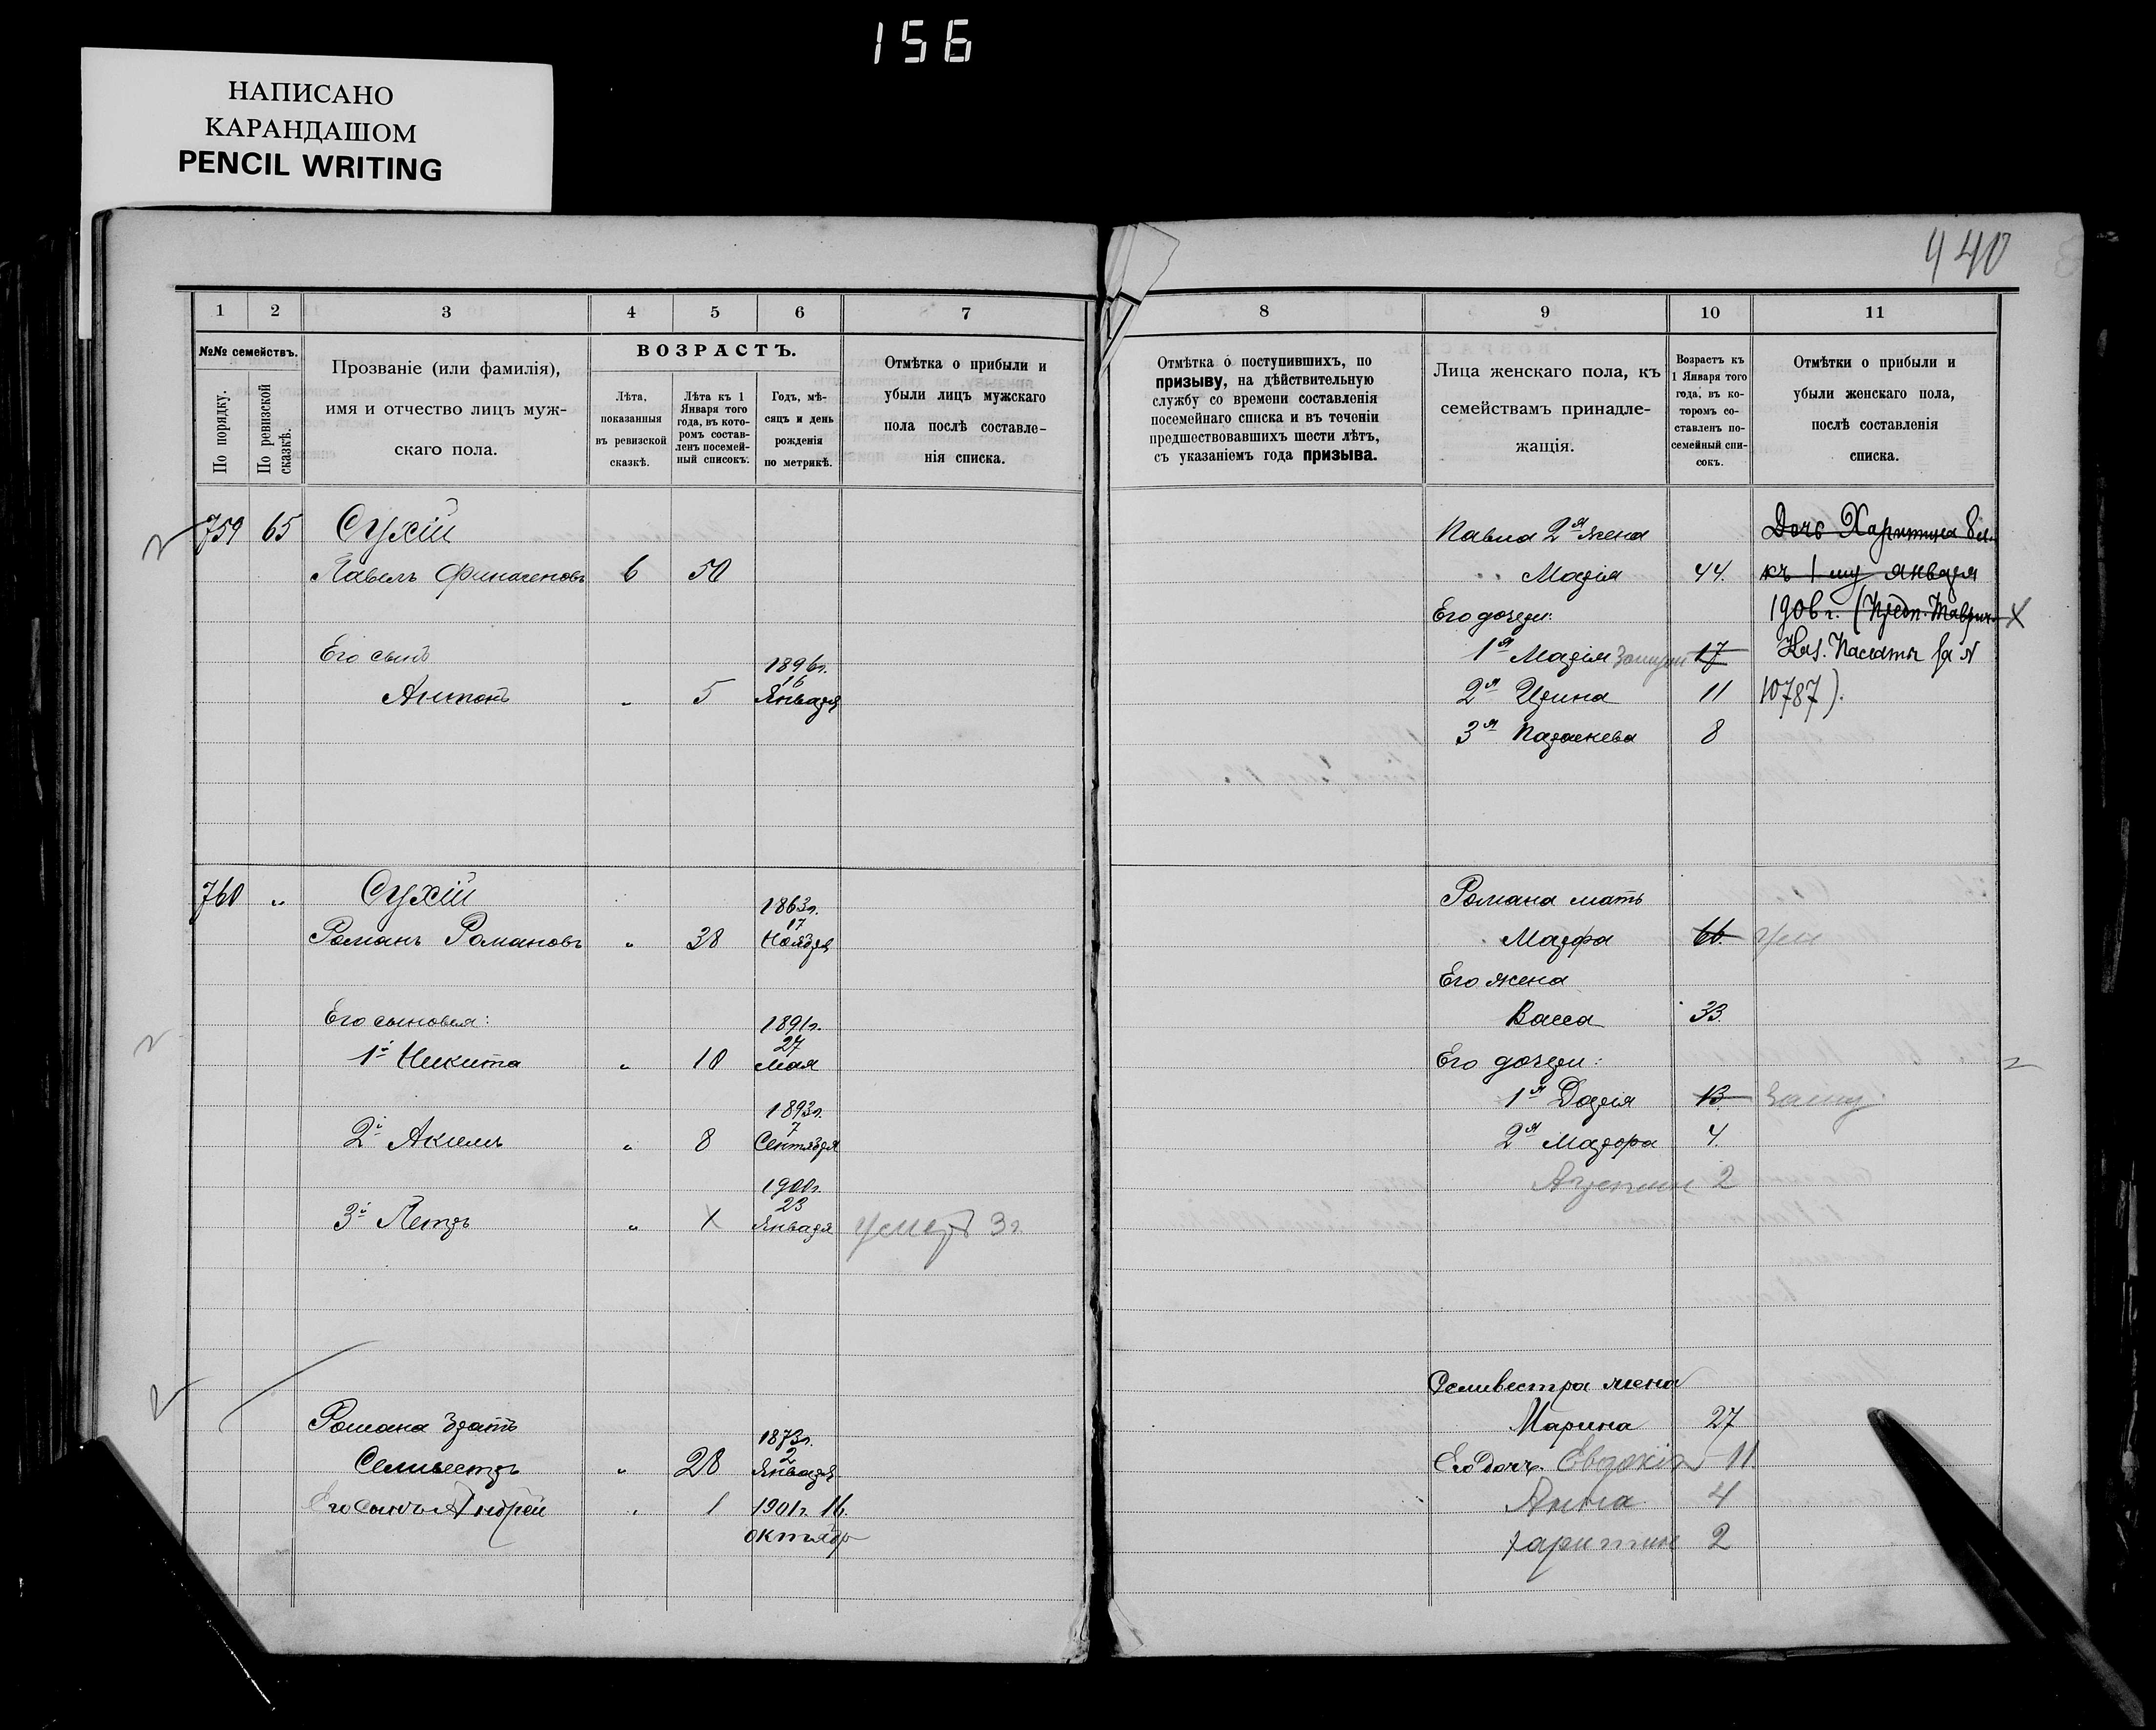 156
НАПИСАНО
КАРАНДАШОМ
PENCIL WRITING
440
1 2 3 4 5 6 7
№№ семействъ.
По порядку.
По ревизской сказкѣ.
Прозваніе (или фамилія),
имя и отчество лицъ муж-
скаго пола.
ВОЗРАСТЪ.
Лѣта,
показанныя
въ ревизской
сказкѣ.
Лѣта къ 1
Января того
года, въ кото-
ромъ состав-
ленъ посемей-
ный списокъ.
Годъ, мѣ-
сяцъ и день
рожденія
по метрикѣ.
Отмѣтка о прибыли и
убыли лицъ мужскаго
пола послѣ составле-
нія списка.
759 65 Сухій
Павелъ 6 50
Его сынъ 1896г.
16
Антонъ „ 5 Января
760 „ Сухій 1863г.
17
Романъ Романовъ „ 38 Ноября
Его сыновья: 1891г.
27
1й Никита „ 10 Мая
1893г.
7
2й Акимъ „ 8 Сентября
1900г.
23
3й Петръ „ Января умеръ 3г.
Романа братъ 1873г.
2
Селивестръ „ 28 Января
Его сынъ Андрей „ 1 1901г. 16.
октябр
8 9 10 11
Отмѣтка о поступившихъ, по
призыву, на дѣйствительную
службу со времени составленія
посемейнаго списка и въ теченіи
предшествовавшихъ шести лѣтъ,
съ указаніемъ года призыва.
Лица женскаго пола, къ
семействамъ принадле-
жащія.
Возрастъ къ
1 Января того
года, въ ко-
торомъ со-
ставленъ по-
семейный спи-
сокъ.
Отмѣтки о прибыли и
убыли женскаго пола,
послѣ составленія
списка.
Павла 2я жена Дочь Харитина 8 л.
Марія 44. къ 1 му января
Его дочери: 1906 г. (Предп. Таврич. X
1я Марія 17 Каз. Палаты за №
2я Ирина 11 10787).
3я Параскева 8
Романа мать
Марфа 66. Уме
Его жена
Васса 33.
Его дочери:
1я Дарія 13. Замуж
2я Мавра 4.
2
Селивестра жена
Марина 27
Его дочь Евдокія 11.
Анна 4
Харитин 2